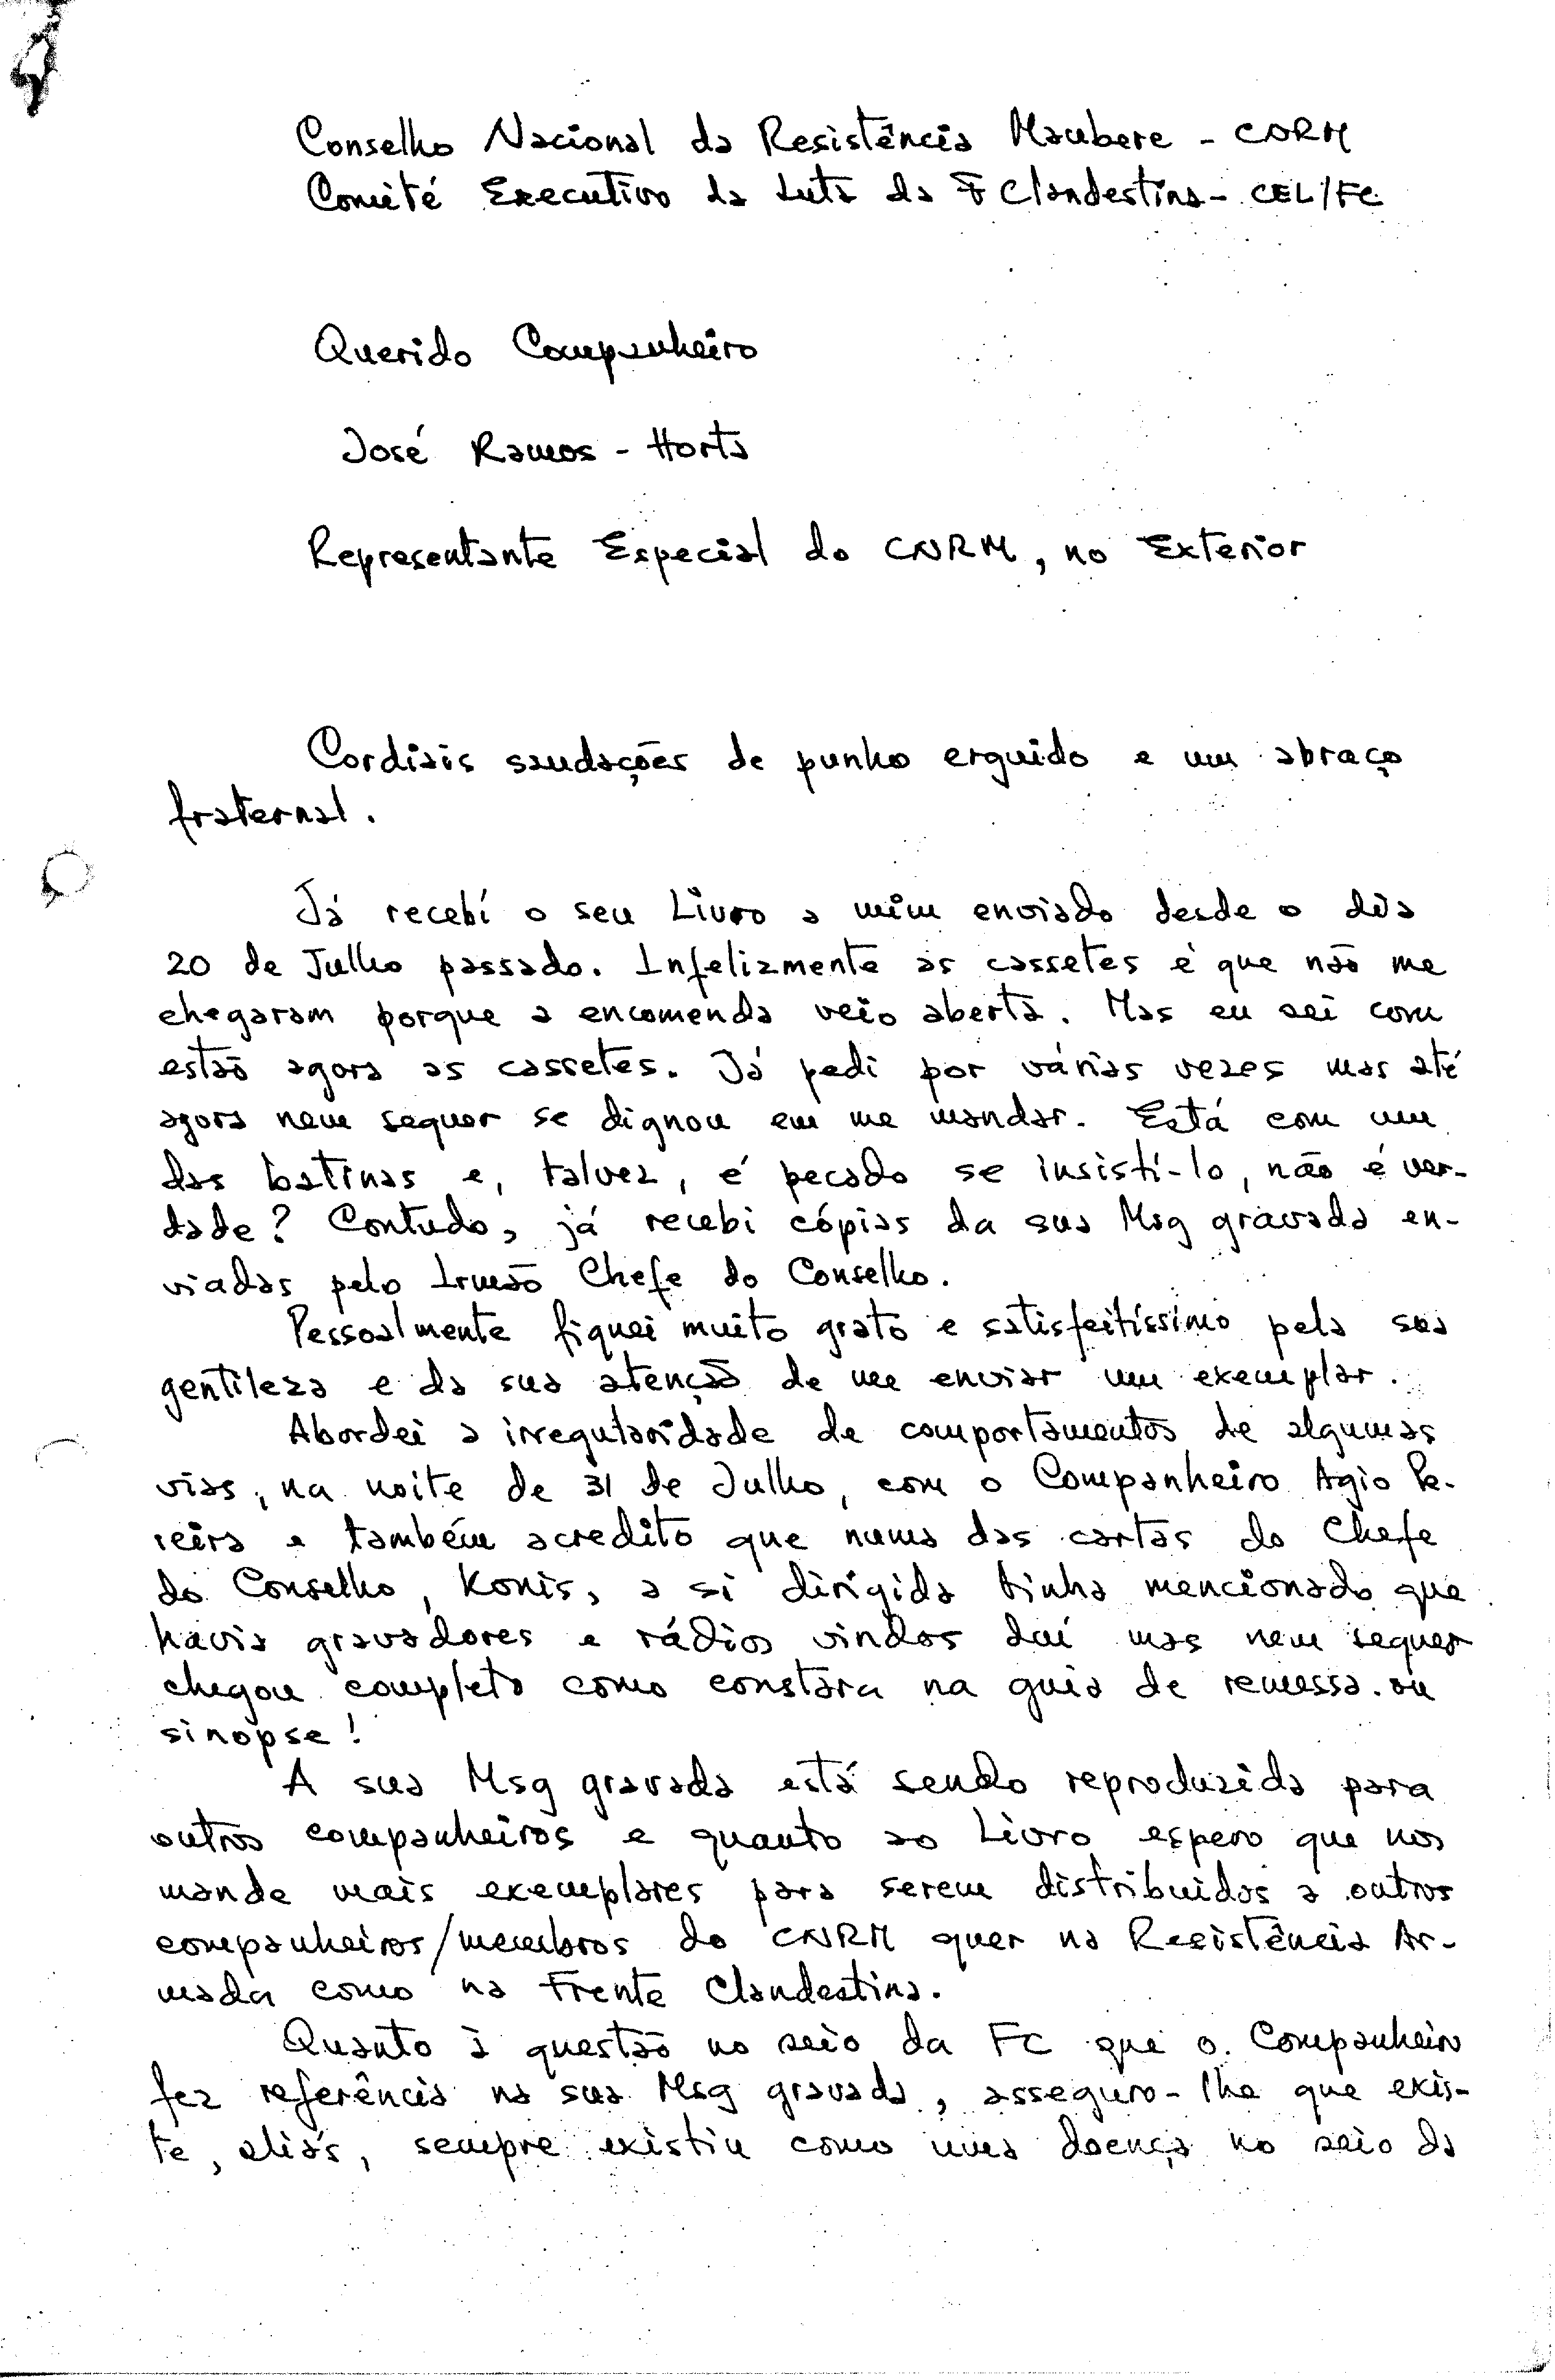 Conselho Nacional da Resistência Maubere - CNRM
Comité Executivo da Luta da F Clandestina - CEL/FC
Querido Companheiro
José Ramos - Horta
Representante Especial do CNRM, no Exterior
Cordiais saudações de punho erguido e um abraço
fraternal.
Já recebí o seu Livro a mim enviado desde o dia
20 de Julho passado. Infelizmente as cassetes é que não me
chegaram porque a encomenda veio aberta. Mas eu sei com
estão agora as cassetes. Já pedi por várias vezes mas até
agora nem sequer se dignou em me mandar. Está com um
das batinas e, talvez, é pecado se insistí-lo, não é ver-
dade? Contudo, já recebi cópias da sua Msg gravada en-
viadas pelo Irmão Chefe do Conselho.
Pessoalmente fiquei muito grato e satisfeitíssimo pela sua
gentileza e da sua atenção de me enviar um exemplar.
Abordei a irregularidade de comportamentos de algumas
vias, na noite de 31 de Julho, com o Companheiro Agio Pe-
reira e também acredito que numa das cartas do Chefe
do Conselho, Konis, a si dirigida tinha mencionado que
havia gravadores e rádios vindos daí mas nem sequer
chegou completo como constara na guia de remessa ou
sinopse!
A sua Msg gravada está sendo reproduzida para
outros companheiros e quanto ao Livro espero que nos
mande mais exemplares para serem distribuidos a outros
companheiros/membros do CNRM quer na Resistência Ar-
mada como na Frente Clandestina.
Quanto à questão no seio da FC que o Companheiro
fez referência na sua Msg gravada, asseguro-lhe que exis-
te, aliás, sempre existiu como uma doença no seio da